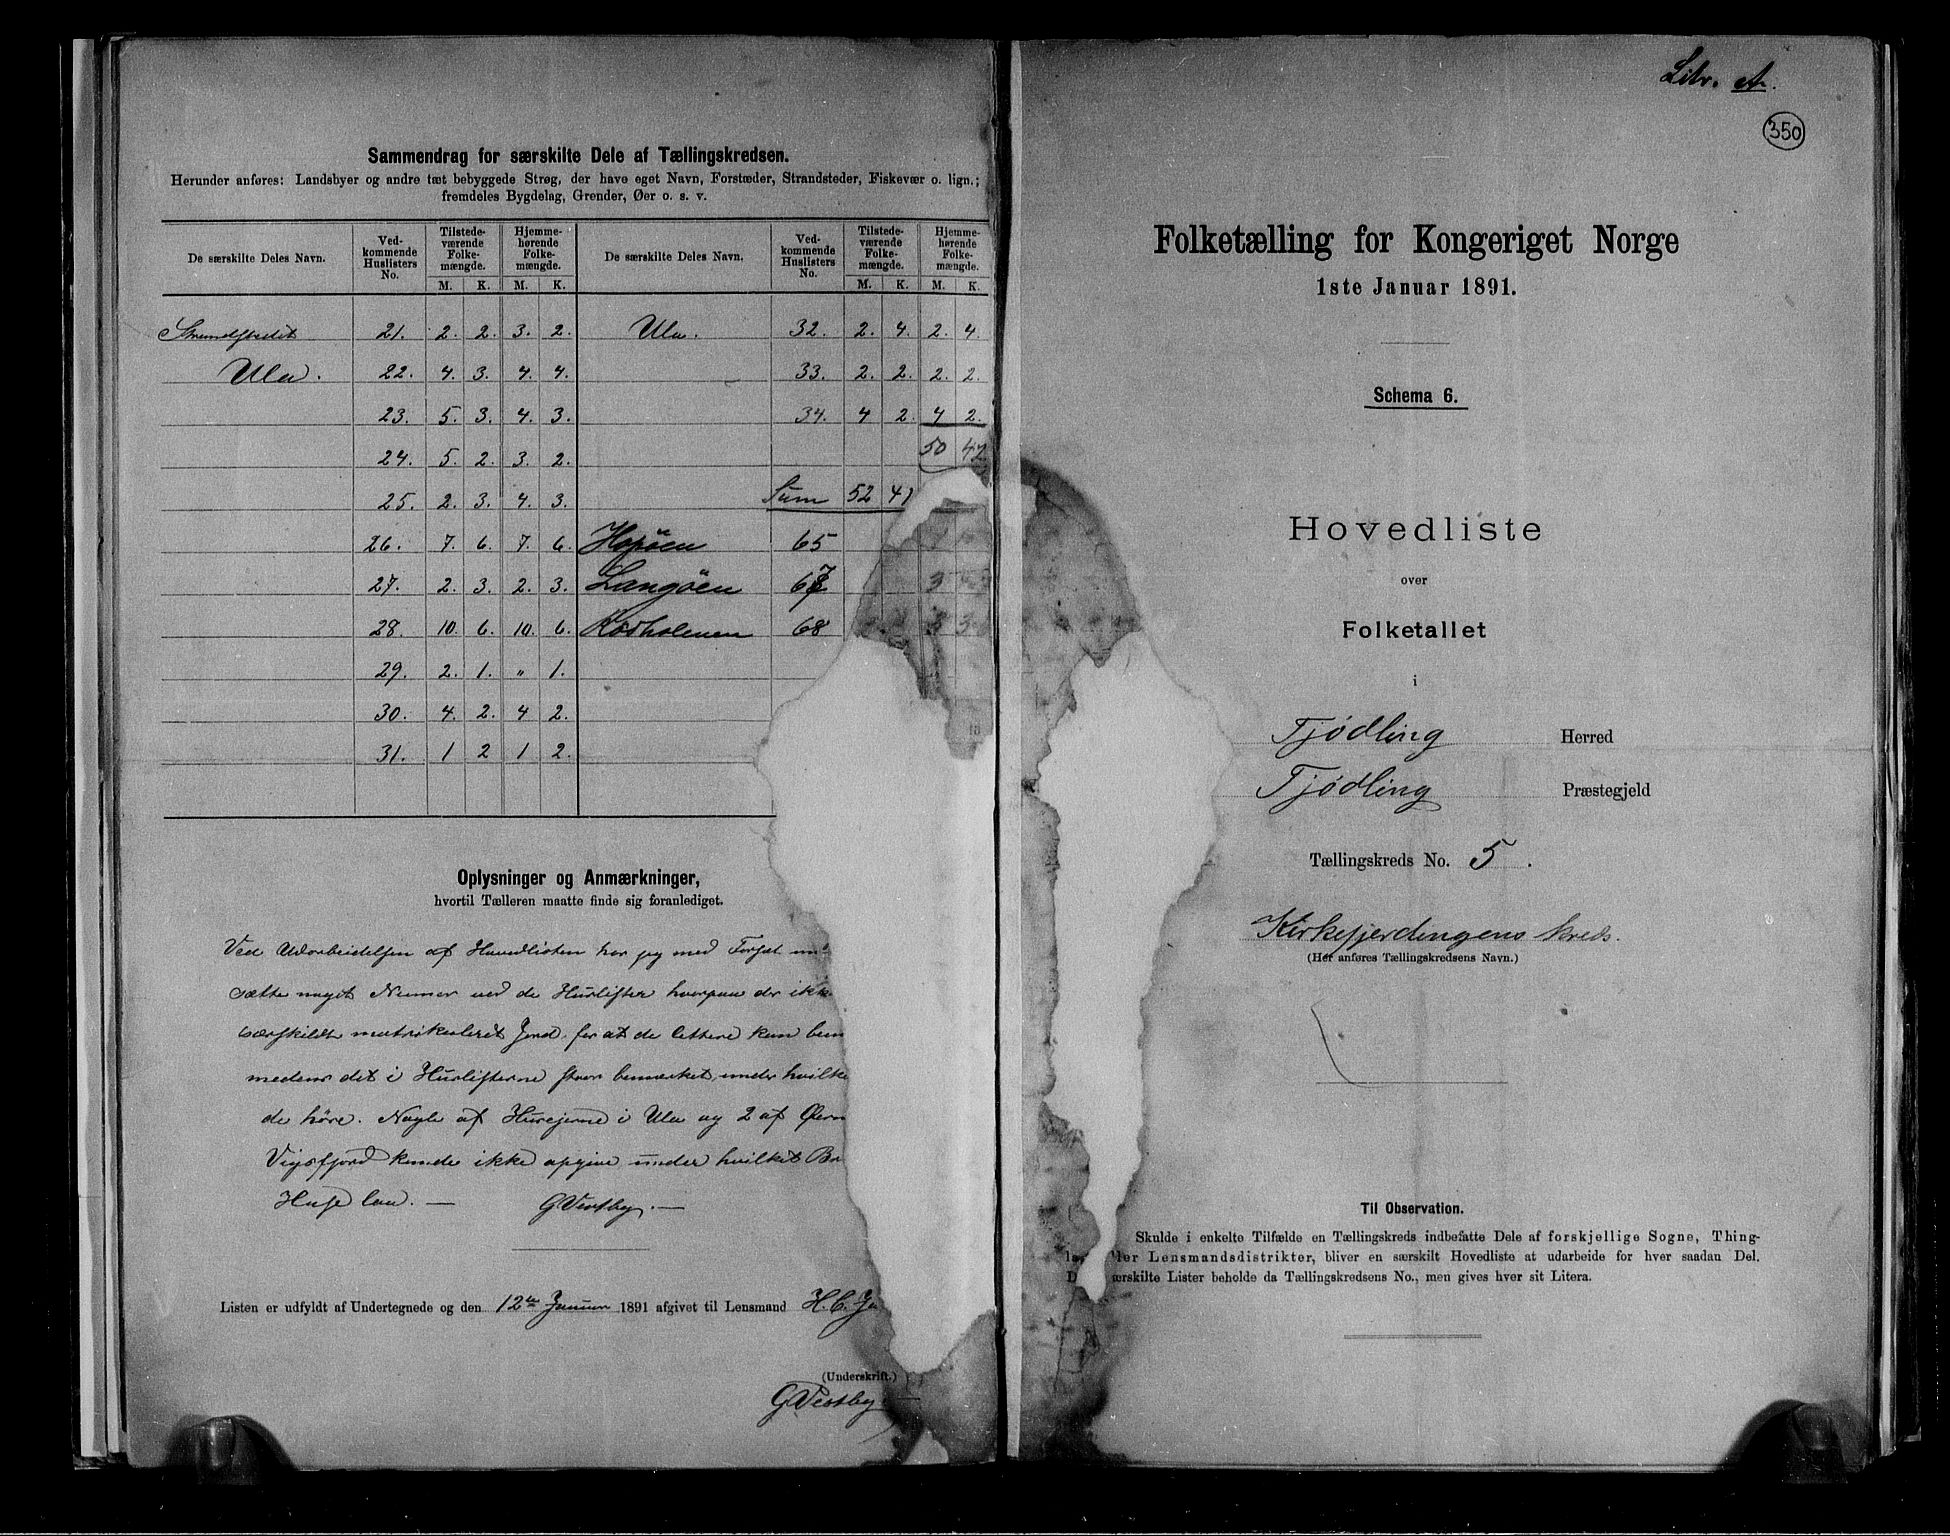 Sammendrag for særskilte Dele af Tællingskredsen.
Herunder anføres: Landsbyer og andre tæt bebyggede Strøg, der have eget Navn, Forstæder, Strandsteder, Fiskevær o. lign.;
fremdeles Bygdelag, Grender, Øer o. s. v.
De særskilte Deles Navn. Vedkommende Huslisters No. Tilstedeværende Folkemængde. Hjemmehørende Folkemængde. De særskilte Deles Navn. Vedkommende Huslisters No. Tilstedeværende Folkemængde. Hjemmehørende Folkemængde.
M. K. M. K. M. K. M. K.
Strandstedet 21. 2. 2. 3. 2. Ula. 32. 2. 4. 2. 4.
Ula. 22. 4. 3. 4. 4. 33. 2. 2. 2. 2.
23. 5. 3. 4. 3. 34. 4 2. 4 2.
24. 5. 2. 3. 2. 50 42
25. 2. 3. 4. 3. Sum 52 41
26. 7. 6. 7. 6. Hopöen 65
27. 2. 3. 2. 3. Langöen 67
28. 10. 6. 10. 6. 68
29. 2. 1. " 1.
30. 4. 2. 4 2.
31. 1 2 1 2.
Oplysninger og Anmærkninger,
hvortil Tælleren maatte finde sig foranlediget.
Ved Udarbeidelsen af Hovedlisten har jeg med Forsæt
sætte noget Numer ved de Huslister hvorpaa der ikke
særskildt matrikuleret Jord, for at de lettere kan
medens det i Huslisterne staar bemærket under hvilke
de høre. Nogle af Huseierne i Ula og 2 af Øerne
Vigsfjord kunde ikke opgive under hvilket
Huse laa. — G Vestby. —
Listen er udfyldt af Undertegnede og den 12te Januar 1891 afgivet til Lensmand H. C.
(Underskrift.)
G Vestby
Litr. A.
350
Folketælling for Kongeriget Norge
1ste Januar 1891.
Schema 6.
Hovedliste
over
Folketallet
i
Tjødling Herred
Tjødling Præstegjeld
Tællingskreds No. 5.
Kirkefjerdingens kreds.
(Her anføres Tællingskredsens Navn.)
Til Observation.
Skulde i enkelte Tilfælde en Tællingskreds indbefatte Dele af forskjellige Sogne, Thing-
ler Lensmandsdistrikter, bliver en særskilt Hovedliste at udarbeide for hver saadan Del.
ærskilte Lister beholde da Tællingskredsens No., men gives hver sit Litera.